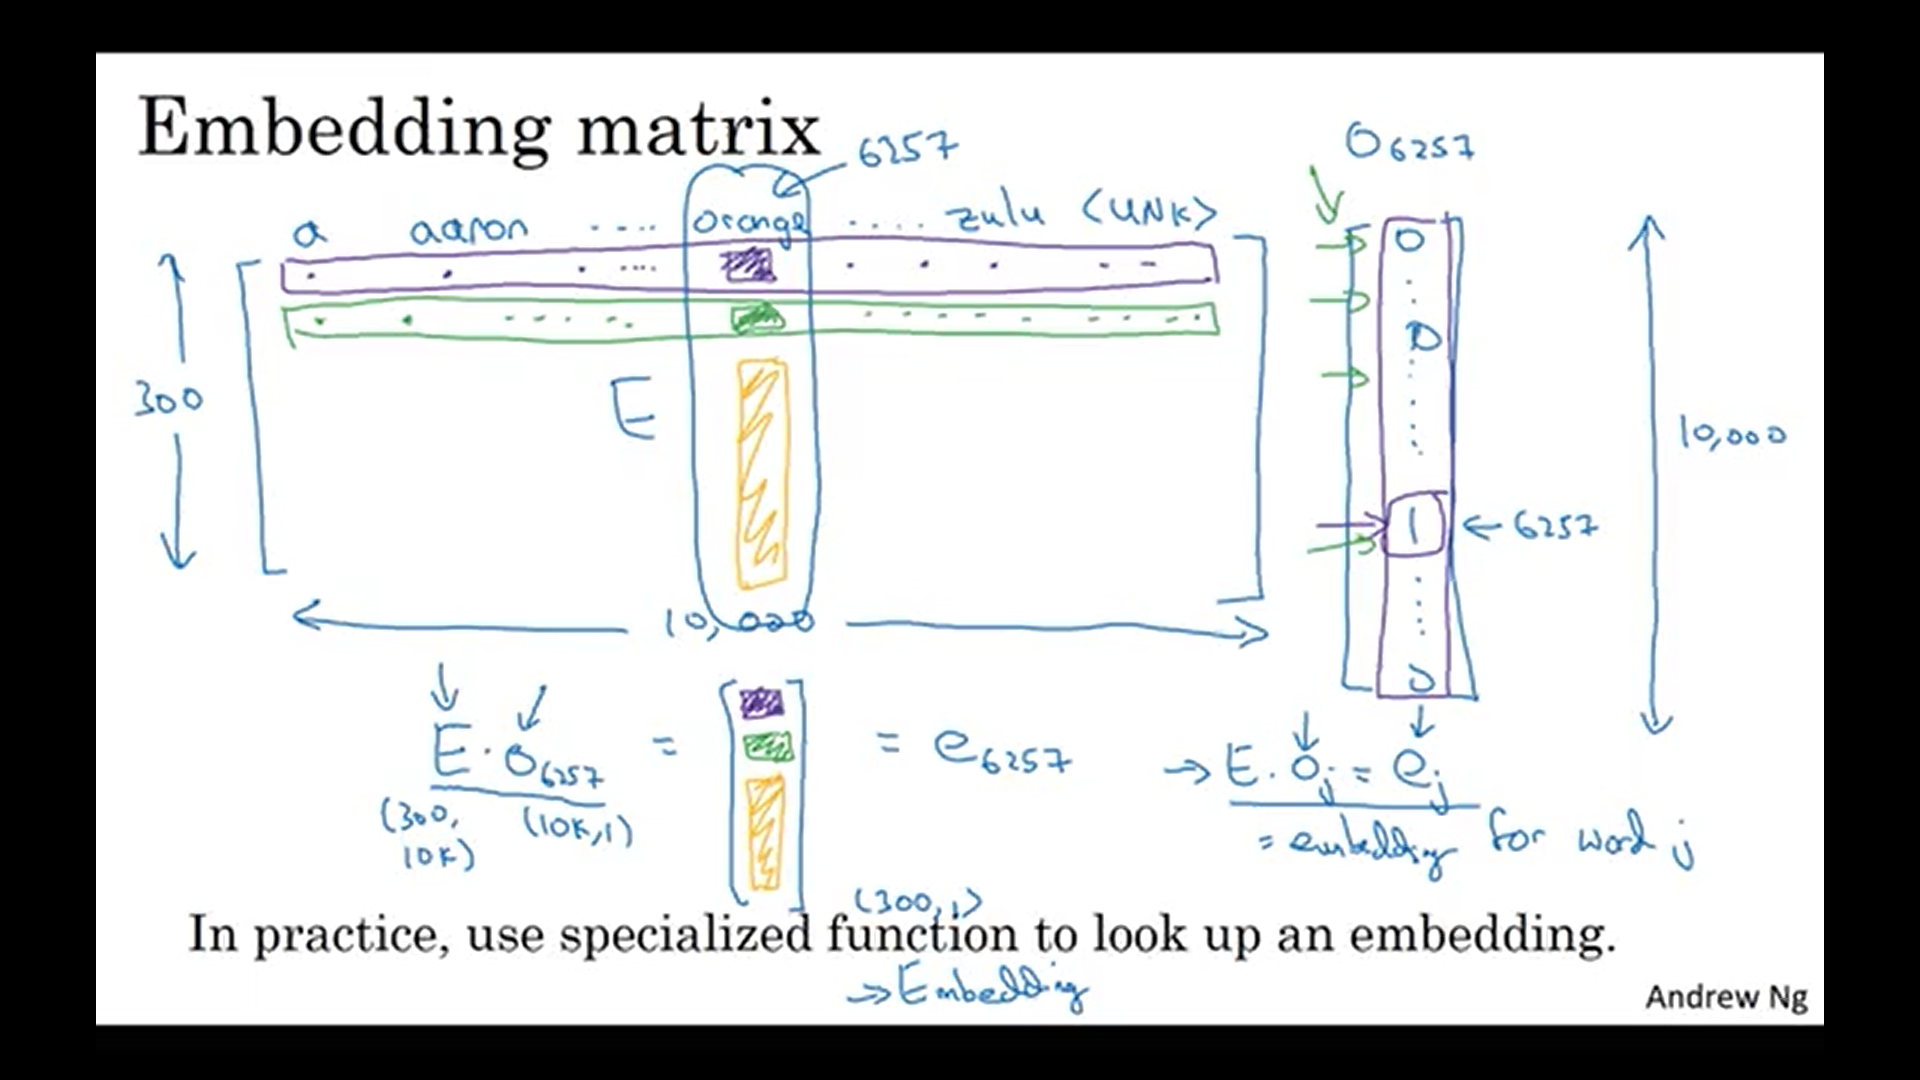 Embedding matrix
6257
O6257
a aaron .... orange ..... zulu <UNK>
300
E
10,000
1
← 6257
10,000
0
0
0
E · o6257 = = e6257
(300, 10K) (10K,1)
(300,1)
→ E · oj = ej
= embedding for word j
In practice, use specialized function to look up an embedding.
→ Embedding
Andrew Ng